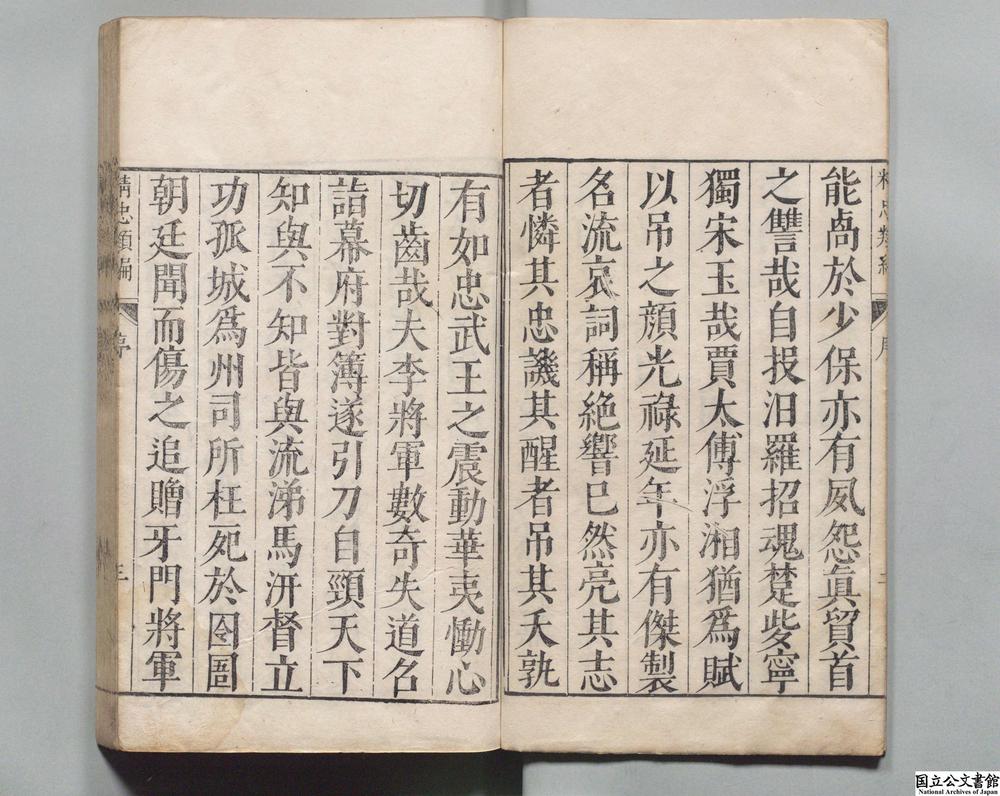 能卨於少保亦有夙怨眞貿首
之讐哉自投汨羅招魂楚些寧
獨宋玉哉賈太傅浮湘猶爲賦
以吊之顏光祿延年亦有傑製
名流哀詞稱絶響已然亮其志
者憐其忠譏其醒者吊其夭孰
有如忠武王之震動華夷慟心
切齒哉夫李將軍數奇失道名
詣幕府對簿遂引刀自頸天下
知與不知皆與流涕馬汧督立
功孤城爲州司所枉死於囹圄
朝廷聞而傷之追贈牙門將軍
精忠類編 序 三
国立公文書館
National Archives of Japan